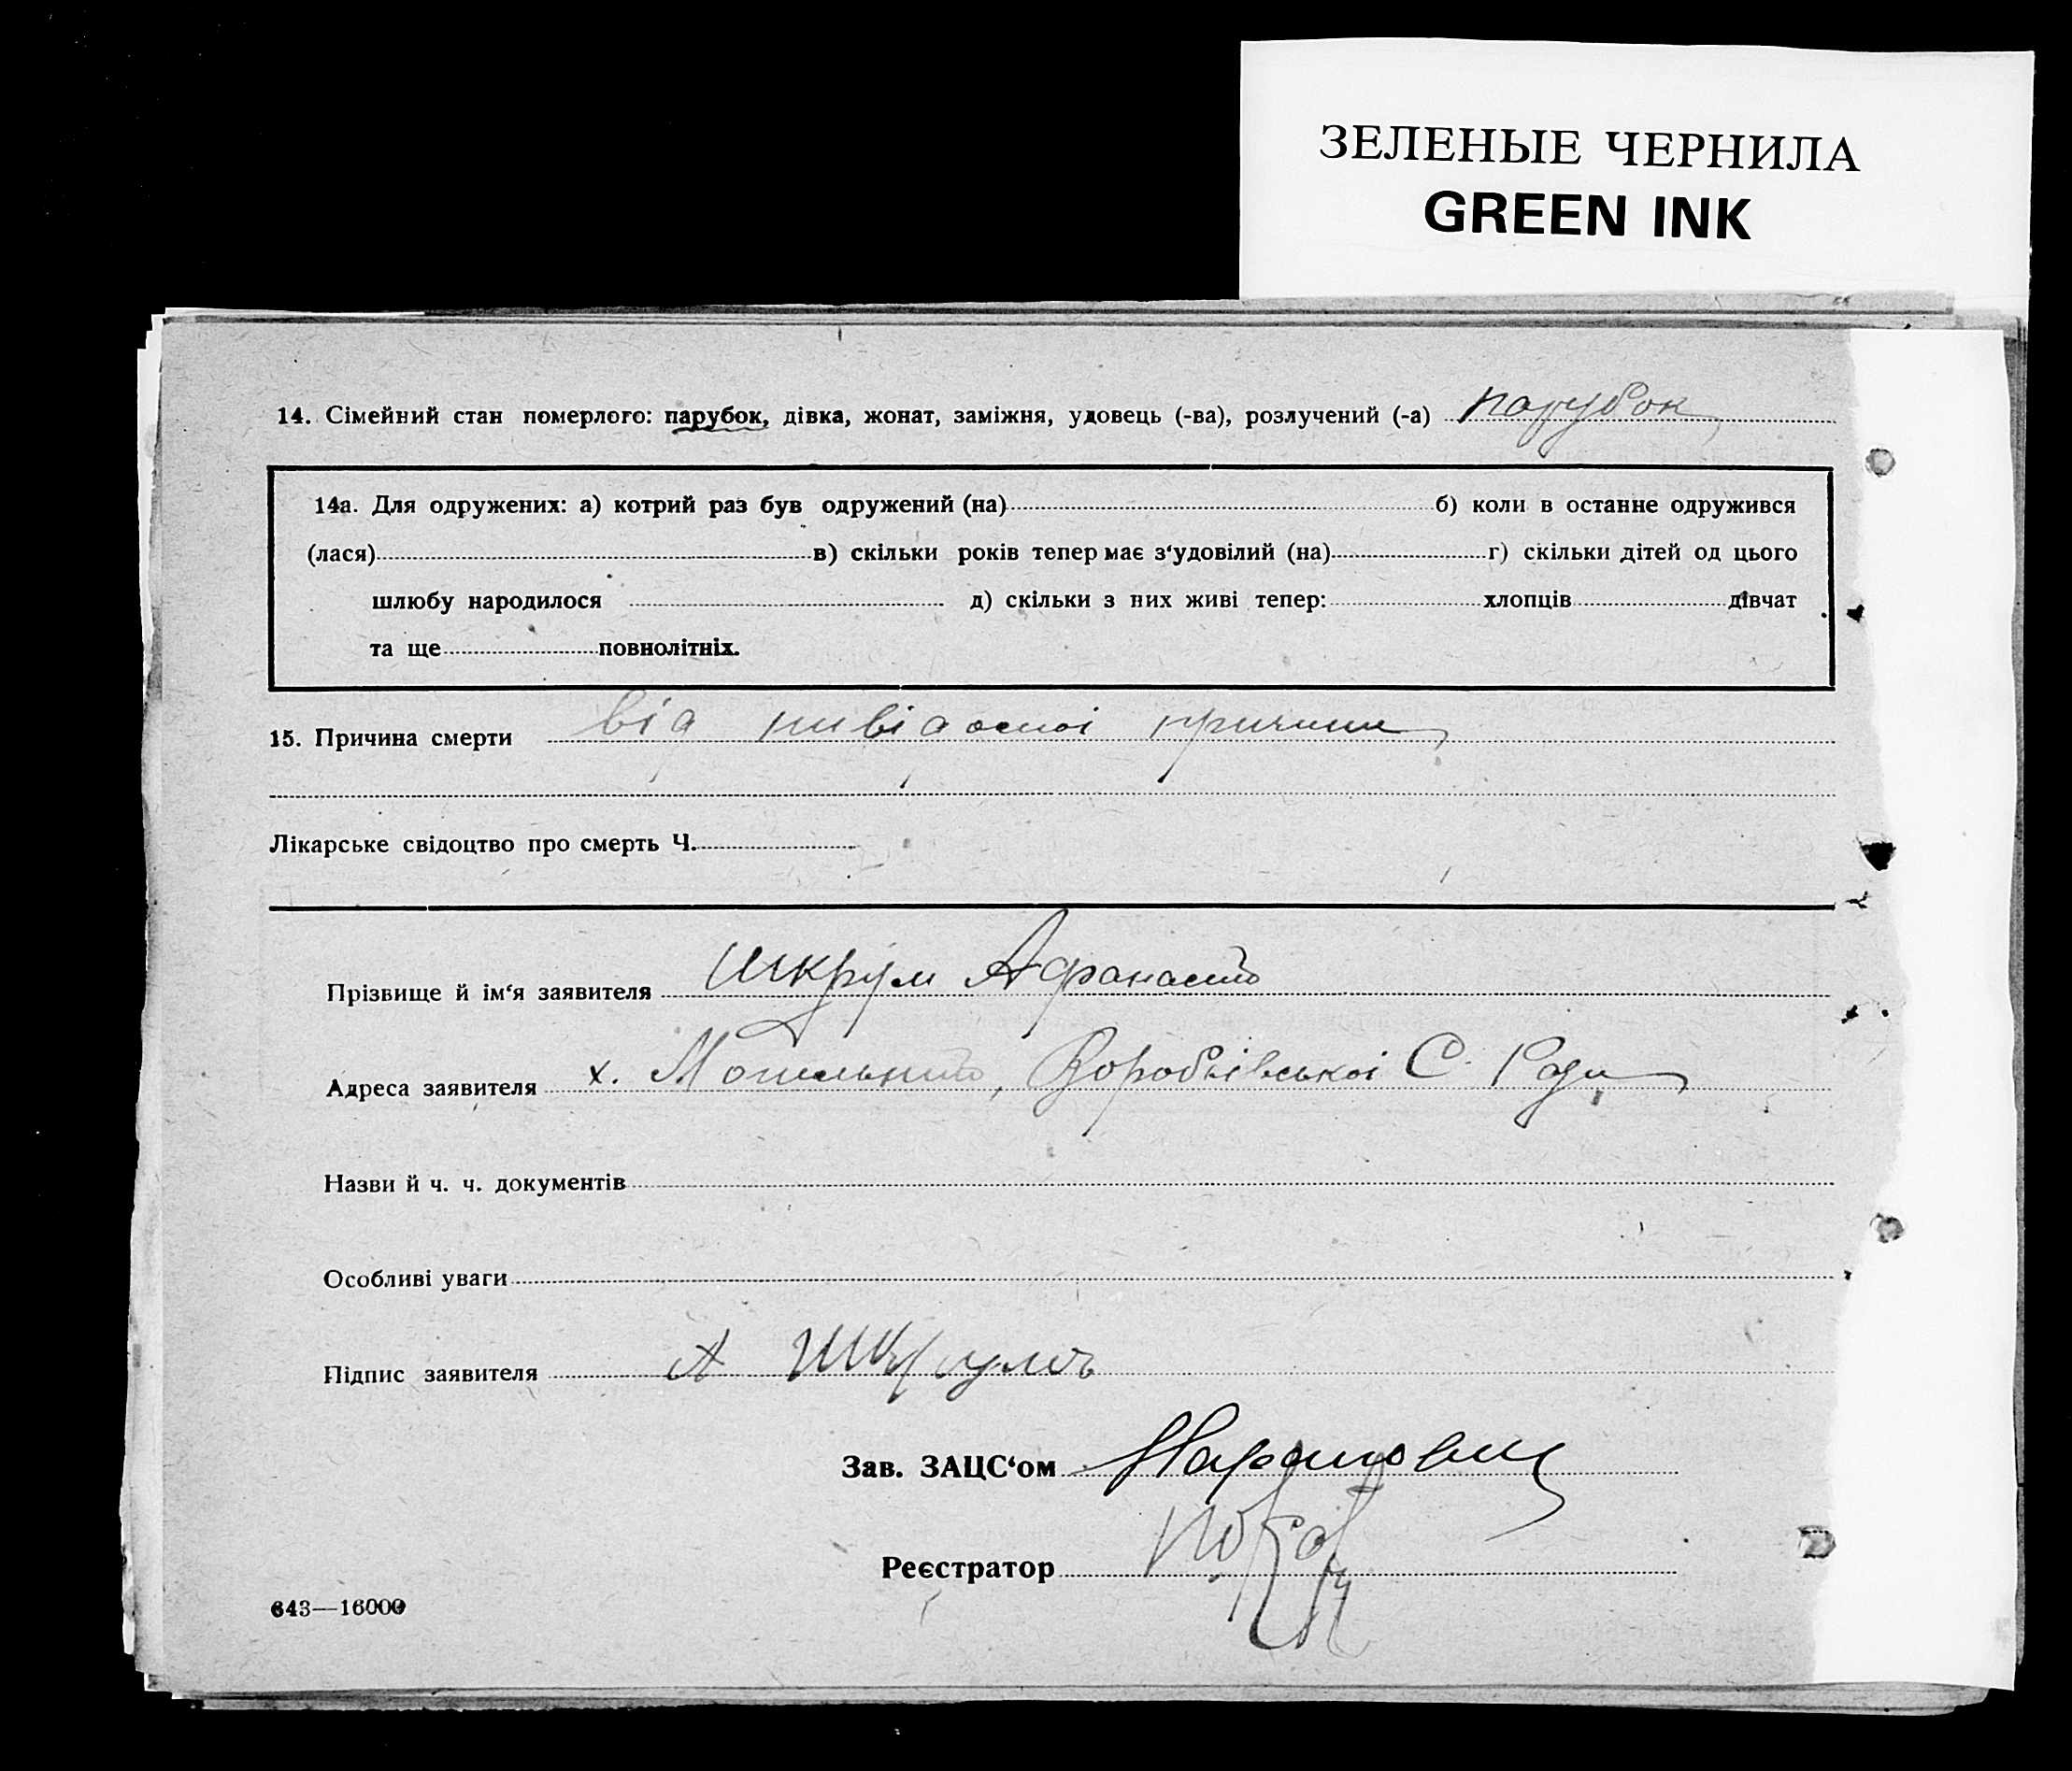 ЗЕЛЕНЫЕ ЧЕРНИЛА
GREEN INK
14. Сімейний стан померлого: парубок, дівка, жонат, заміжня, удовець (-ва), розлучений (-а) парубок
14а. Для одружених: а) котрий раз був одружений (на) б) коли в останне одружився
(лася) в) скільки років тепер має з‘удовілий (на) г) скільки дітей од цього
шлюбу народилося д) скільки з них живі тепер: хлопців дівчат
та ще повнолітніх.
15. Причина смерти від нивідомої причини
Лікарське свідоцтво про смерть Ч.
Прізвище й ім‘я заявителя Шкрум Афанасий
Адреса заявителя х. Воробіївської С. Ради
Назви й ч. ч. документів
Особливі уваги
Підпис заявителя А Шкрумъ
Зав. ЗАЦС‘ом
Реєстратор
643—16000